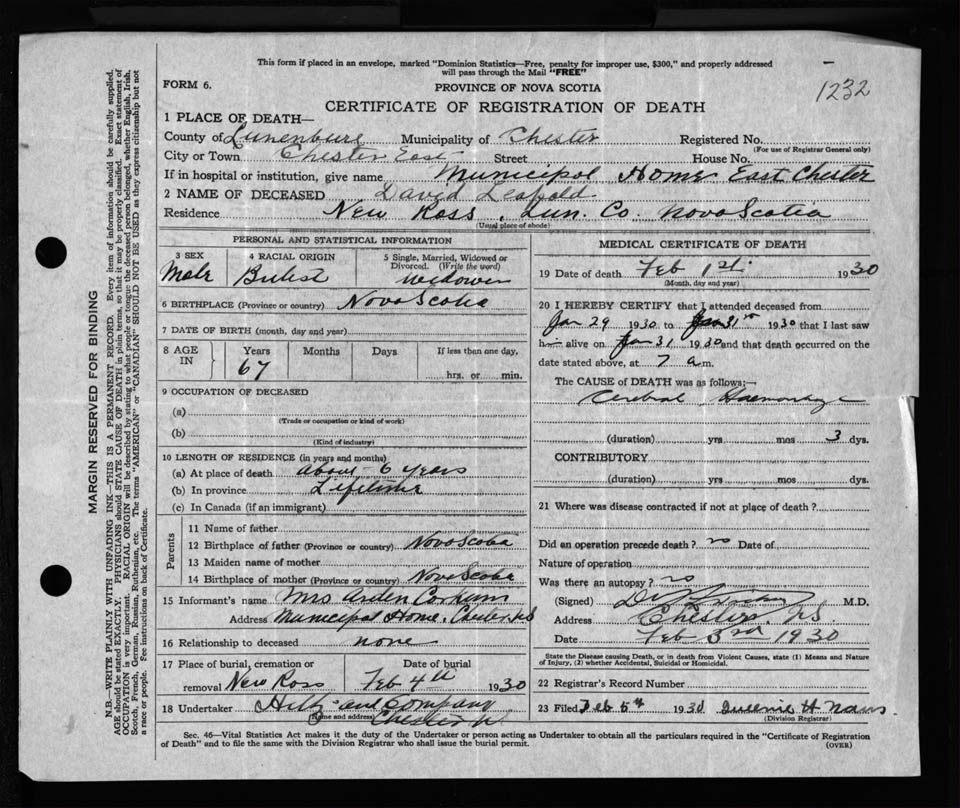 This form if placed in an envelope, marked "Dominion Statistics—Free, penalty for improper use, $300," and properly addressed
will pass through the Mail "FREE"
FORM 6.
PROVINCE OF NOVA SCOTIA
1232
CERTIFICATE OF REGISTRATION OF DEATH
1 PLACE OF DEATH—
County of Lunenburg Municipality of Chester Registered No.
(For use of Registrar General only)
City or Town Chester East Street House No.
If in hospital or institution, give name Municipal Home East Chester
2 NAME OF DECEASED David Leopold
Residence New Ross, Lun. Co. Nova Scotia
(Usual place of abode)
PERSONAL AND STATISTICAL INFORMATION
3 SEX Male
4 RACIAL ORIGIN
5 Single, Married, Widowed or Divorced. (Write the word) widower
6 BIRTHPLACE (Province or country) Nova Scotia
7 DATE OF BIRTH (month, day and year)
8 AGE IN Years 67 Months Days If less than one day, hrs. or min.
9 OCCUPATION OF DECEASED
(a)
(Trade or occupation or kind of work)
(b)
(Kind of industry)
10 LENGTH OF RESIDENCE (in years and months)
(a) At place of death about 6 years
(b) In province Lifetime
(c) In Canada (if an immigrant)
Parents
11 Name of father
12 Birthplace of father (Province or country) Nova Scotia
13 Maiden name of mother
14 Birthplace of mother (Province or country) Nova Scotia
15 Informant's name Mrs Arden Corkum
Address Municipal Home, Chester, NS
16 Relationship to deceased none
17 Place of burial, cremation or removal New Ross
Date of burial Feb 4th 1930
18 Undertaker Hilty and Company
(Name and address) Chester
MEDICAL CERTIFICATE OF DEATH
19 Date of death Feb 1st 1930
(Month, day and year)
20 I HEREBY CERTIFY that I attended deceased from
Jan 29 1930 to Jan 31 1930 that I last saw
h alive on Jan 31 1930 and that death occurred on the
date stated above, at 7 a.m.
The CAUSE of DEATH was as follows:—
Cerebral Haemorrhage
(duration) yrs mos 3 dys.
CONTRIBUTORY
(duration) yrs. mos. dys.
21 Where was disease contracted if not at place of death?
Did an operation precede death? no Date of
Nature of operation
Was there an autopsy? no
(Signed) M.D.
Address Chester, NS.
Date Feb 3rd 1930
State the Disease causing Death, or in death from Violent Causes, state (1) Means and Nature
of Injury, (2) whether Accidental, Suicidal or Homicidal.
22 Registrar's Record Number
23 Filed Feb 5th 1930 H
(Division Registrar)
Sec. 46—Vital Statistics Act makes it the duty of the Undertaker or person acting as Undertaker to obtain all the particulars required in the "Certificate of Registration
of Death" and to file the same with the Division Registrar who shall issue the burial permit.
(OVER)
MARGIN RESERVED FOR BINDING
N.B.—WRITE PLAINLY WITH UNFADING INK—THIS IS A PERMANENT RECORD. Every item of information should be carefully supplied.
AGE should be stated EXACTLY. PHYSICIANS should STATE CAUSE OF DEATH in plain terms, so that it may be properly classified. Exact statement of
OCCUPATION is very important. RACIAL ORIGIN will be described by stating to what people or tongue the deceased person belonged, whether English, Irish,
Scotch, French, German, Russian, Ruthenian, etc. The terms "AMERICAN" or "CANADIAN" SHOULD NOT BE USED as they express citizenship but not
a race or people. Fee instructions on back of Certificate.